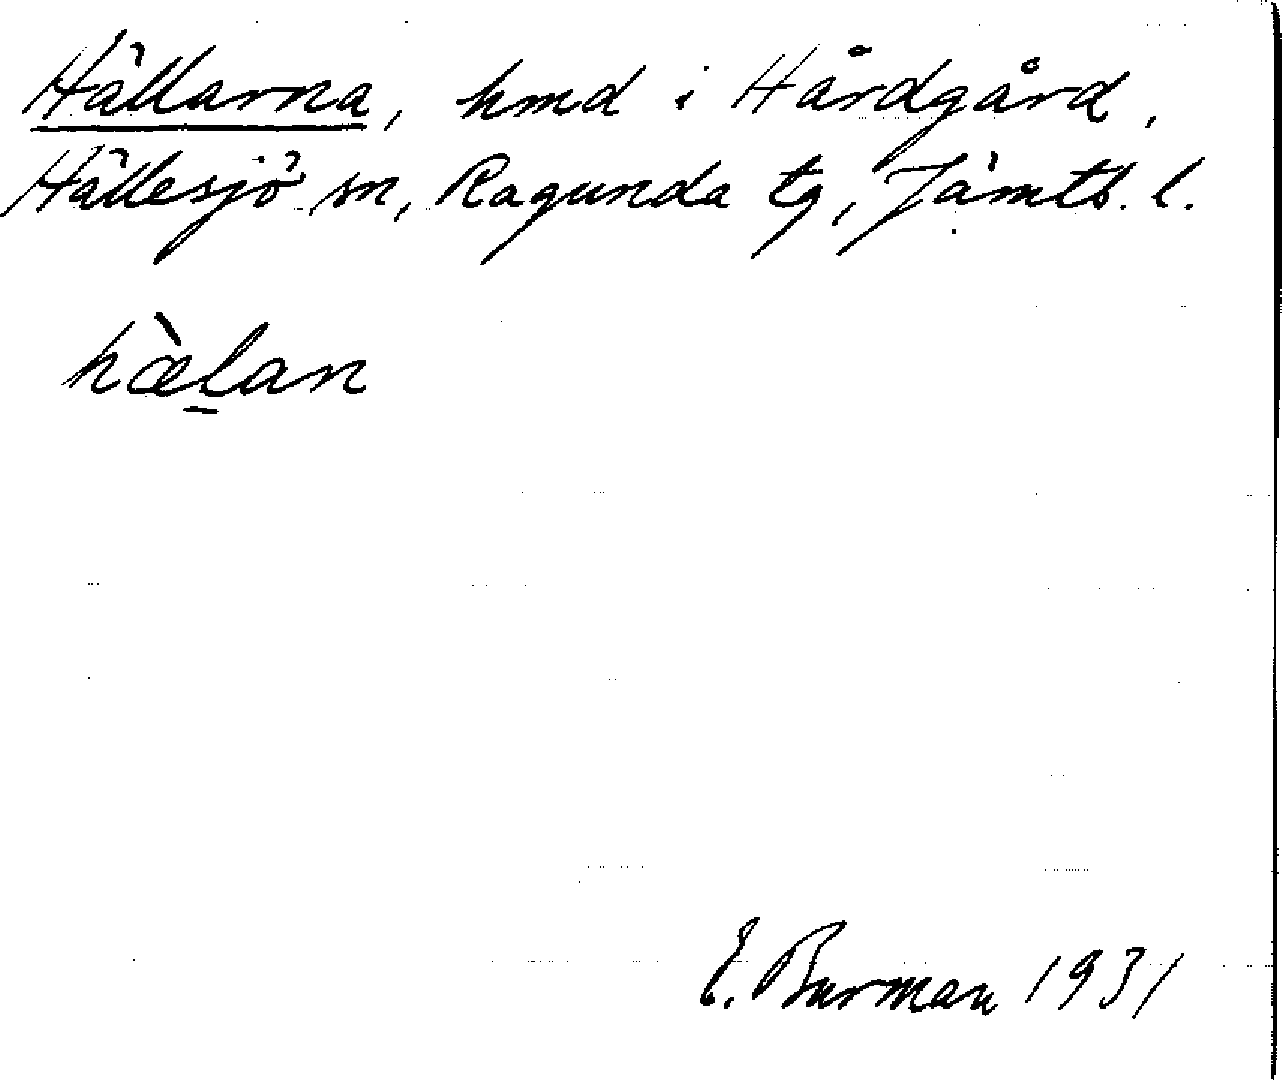 Hällarna, hmd i Hårdgård,
Hällesjö sn, Ragunda tg, Jämtl. l.
hæ̀l̠an
E. Burman 1931